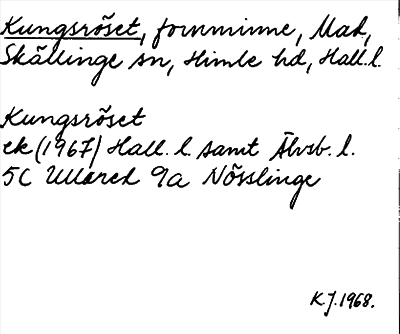 Kungsröset, fornminne, Mad,
Skällinge sn, Himle hd, Hall. l.
Kungsröset
ek (1967) Hall. l. samt Älvsb. l.
5C Ullared 9a Nösslinge
K.J. 1968.